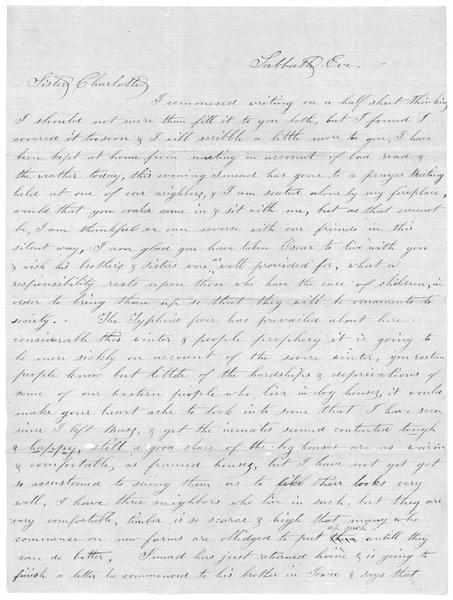 Sabbath Eve. -
Sister Charlotte,
I commenced writing on a half sheet thinking
I should not more then fill it to you both, but I found I
covered it too soon & I will scribble a little more to you, I have
been kept at home from meeting on account of bad road &
the weather today, this evening has gone to a prayer Meeting
held at one of our neighbors, & I am seated alone by my fireplace,
would that you could come in & sit with me, but as that cannot
be, I am thankful we can converse with our friends in this
silent way, I am glad you have taken Oscar to live with you
& wish his brothers & sisters were as well provided for, what a
responsibility rests upon those who have the care of children, in
order to bring them up so that they will be ornaments to
society. The Typhoid fever has prevailed about here
considerable this winter & people prophesy it is going to
be more sickly on account of the severe winter, you Eastern
people know but little of the hardships & deprivations of
some of our western people who live in log houses, it would
make your heart ache to look into some that I have seen
since I left Mass, & yet the inmates seemed contented tough
& happy, still a good share of the log houses are as warm
& comfortable, as framed houses, but I have not yet got
so accustomed to seeing them as to like their looks very
well, I have three neighbors who live in such, but they are
very comfortable, timber is so scarce & high that many who
commence on new farms are obliedged to put up such untill they
can do better, has just returned home & is going to
finish a letter he commenced to his brother in Iowa & says that